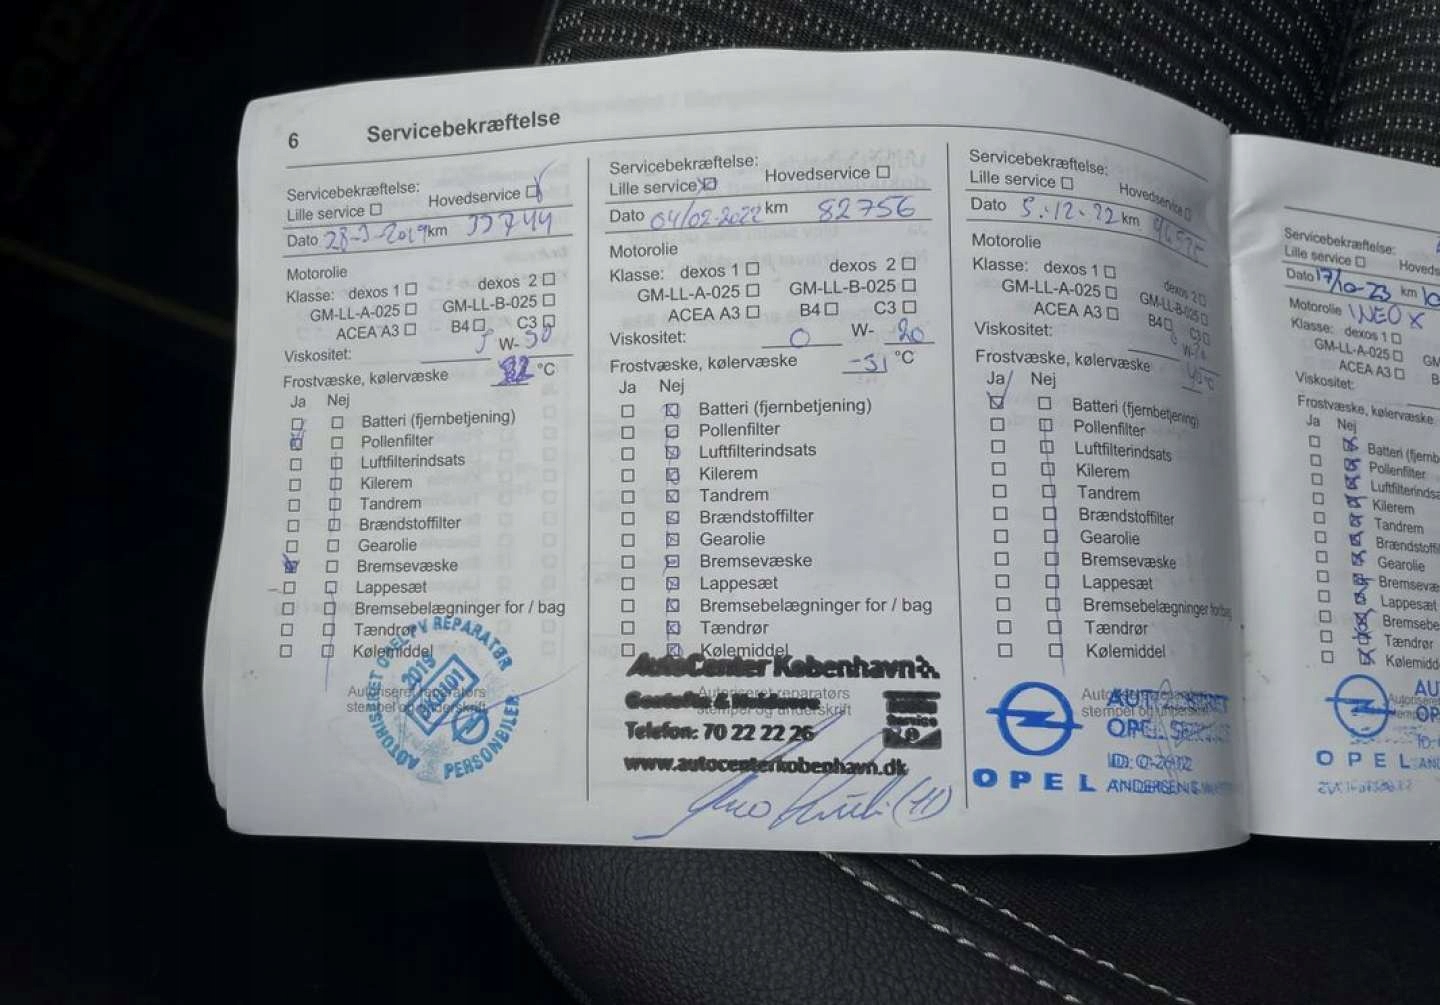 6 Servicebekræftelse
Servicebekræftelse:
Lille service Hovedservice
Dato 28-3-2019 km 33744
Motorolie
Klasse: dexos 1 dexos 2
GM-LL-A-025 GM-LL-B-025
ACEA A3 B4 C3
Viskositet: 5 W- 30
Frostvæske, kølervæske °C
Ja Nej
Batteri (fjernbetjening)
Pollenfilter
Luftfilterindsats
Kilerem
Tandrem
Brændstoffilter
Gearolie
Bremsevæske
Lappesæt
Bremsebelægninger for / bag
Tændrør
Kølemiddel
Autoriseret reparatørs
stempel og underskrift
AUTORISERET OPEL PV REPARATØR
2019
PERSONBILER
Servicebekræftelse:
Lille service Hovedservice
Dato 04/02-2022 km 82756
Motorolie
Klasse: dexos 1 dexos 2
GM-LL-A-025 GM-LL-B-025
ACEA A3 B4 C3
Viskositet: 0 W- 20
Frostvæske, kølervæske -31 °C
Ja Nej
Batteri (fjernbetjening)
Pollenfilter
Luftfilterindsats
Kilerem
Tandrem
Brændstoffilter
Gearolie
Bremsevæske
Lappesæt
Bremsebelægninger for / bag
Tændrør
Kølemiddel
AutoCenter København
Autoriseret reparatørs
stempel og underskrift
Service
Telefon: 70 22 22 26
www.autocenterkobenhavn.dk
(11)
Servicebekræftelse:
Lille service Hovedservice
Dato 5.-12-22 km
Motorolie
Klasse: dexos 1 dexos 2
GM-LL-A-025 GM-LL-B-025
ACEA A3 B4 C3
Viskositet: W-
Frostvæske, kølervæske °C
Ja Nej
Batteri (fjernbetjening)
Pollenfilter
Luftfilterindsats
Kilerem
Tandrem
Brændstoffilter
Gearolie
Bremsevæske
Lappesæt
Bremsebelægninger for/bag
Tændrør
Kølemiddel
stempel og underskrift
OPEL
OPEL SERVICE
ANDERSEN
Servicebekræftelse:
Lille service Hoveds
Dato 17/10-23 km
Motorolie INEOX
Klasse: dexos 1
GM-LL-A-025 GM
ACEA A3
Viskositet:
Frostvæske, kølervæske
Ja Nej
Batteri (fjernb
Pollenfilter
Luftfilterindsa
Kilerem
Tandrem
Brændstoffil
Gearolie
Bremsevæ
Lappesæt
Bremsebe
Tændrør
Kølemidd
AU
OP
ID:
OPEL AN